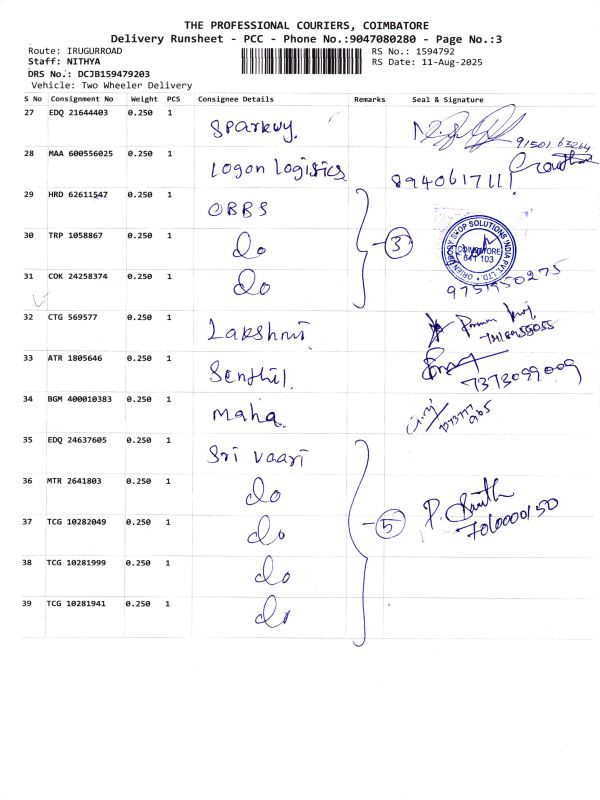 THE PROFESSIONAL COURIERS, COIMBATORE
Delivery Runsheet - PCC - Phone No.:9047080280 - Page No.:3
Route: IRUGURROAD RS No.: 1594792
Staff: NITHYA RS Date: 11-Aug-2025
DRS No.: DCJB159479203
Vehicle: Two Wheeler Delivery
S No Consignment No Weight PCS Consignee Details Remarks Seal & Signature
27 EDQ 21644403 0.250 1 Sparkwy.
28 MAA 600556025 0.250 1 Logon Logistics 8940617111
29 HRD 62611547 0.250 1 OBBS
30 TRP 1058867 0.250 1 do 3 COIMBATORE 641 103
31 COK 24258374 0.250 1 do
32 CTG 569577 0.250 1 Lakshmi
33 ATR 1805646 0.250 1 Senthil. 7373099009
34 BGM 400010383 0.250 1 Maha.
35 EDQ 24637605 0.250 1 Sri Vaari
36 MTR 2641803 0.250 1 do
37 TCG 10282049 0.250 1 do 5
38 TCG 10281999 0.250 1 do
39 TCG 10281941 0.250 1 do